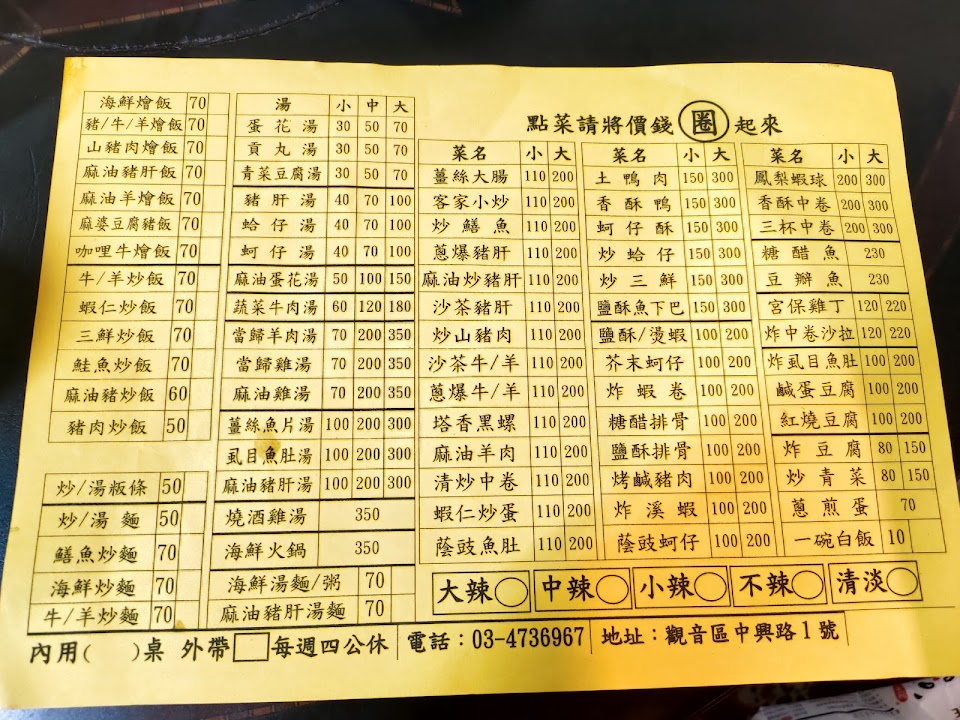 點菜請將價錢圈起來
海鮮燴飯 70
豬/牛/羊燴飯 70
山豬肉燴飯 70
麻油豬肝飯 70
麻油羊燴飯 70
麻婆豆腐豬飯 70
咖哩牛燴飯 70
牛/羊炒飯 70
蝦仁炒飯 70
三鮮炒飯 70
鮭魚炒飯 70
麻油豬炒飯 60
豬肉炒飯 50
炒/湯粄條 50
炒/湯 麵 50
鱔魚炒麵 70
海鮮炒麵 70
牛/羊炒麵 70
湯 小 中 大
蛋花湯 30 50 70
貢丸湯 30 50 70
青菜豆腐湯 30 50 70
豬肝湯 40 70 100
蛤仔湯 40 70 100
蚵仔湯 40 70 100
麻油蛋花湯 50 100 150
蔬菜牛肉湯 60 120 180
當歸羊肉湯 70 200 350
當歸雞湯 70 200 350
麻油雞湯 70 200 350
薑絲魚片湯 100 200 300
虱目魚肚湯 100 200 300
麻油豬肝湯 100 200 300
燒酒雞湯 350
海鮮火鍋 350
海鮮湯麵/粥 70
麻油豬肝湯麵 70
菜名 小 大
薑絲大腸 110 200
客家小炒 110 200
炒鱔魚 110 200
蔥爆豬肝 110 200
麻油炒豬肝 110 200
沙茶豬肝 110 200
炒山豬肉 110 200
沙茶牛/羊 110 200
蔥爆牛/羊 110 200
塔香黑螺 110 200
麻油羊肉 110 200
清炒中卷 110 200
蝦仁炒蛋 110 200
蔭豉魚肚 110 200
菜名 小 大
土鴨肉 150 300
香酥鴨 150 300
蚵仔酥 150 300
炒蛤仔 150 300
炒三鮮 150 300
鹽酥魚下巴 150 300
鹽酥/燙蝦 100 200
芥末蚵仔 100 200
炸蝦卷 100 200
糖醋排骨 100 200
鹽酥排骨 100 200
烤鹹豬肉 100 200
炸溪蝦 100 200
蔭豉蚵仔 100 200
菜名 小 大
鳳梨蝦球 200 300
香酥中卷 200 300
三杯中卷 200 300
糖醋魚 230
豆瓣魚 230
宮保雞丁 120 220
炸中卷沙拉 120 220
炸虱目魚肚 100 200
鹹蛋豆腐 100 200
紅燒豆腐 100 200
炸豆腐 80 150
炒青菜 80 150
蔥煎蛋 70
一碗白飯 10
大辣 中辣 小辣 不辣 清淡
內用( )桌 外帶 每週四公休 電話：03-4736967 地址：觀音區中興路1號